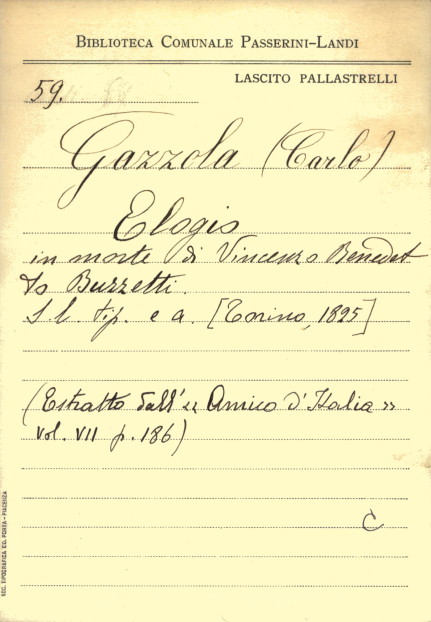 BIBLIOTECA COMUNALE PASSERINI-LANDI
LASCITO PALLASTRELLI
59.
Gazzola (Carlo)
Elogio
in morte di Vincenzo Benedet
to Buzzetti.
S. l. tip. e a. [Torino, 1825]
(Estratto dall'« Amico d'Italia »
vol. VII p. 186)
C
SOC. TIPOGRAFICA ED. PORTA - PIACENZA